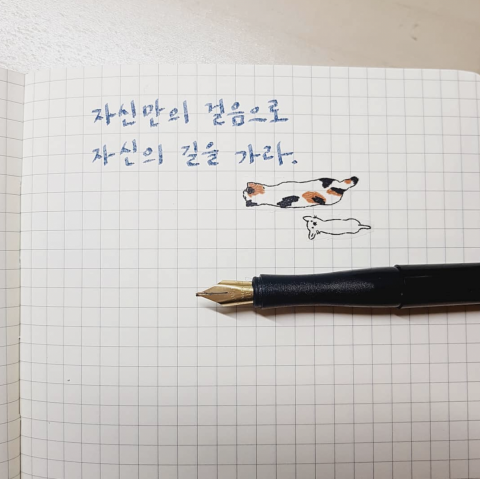 자신만의 걸음으로
자신의 길을 가라.